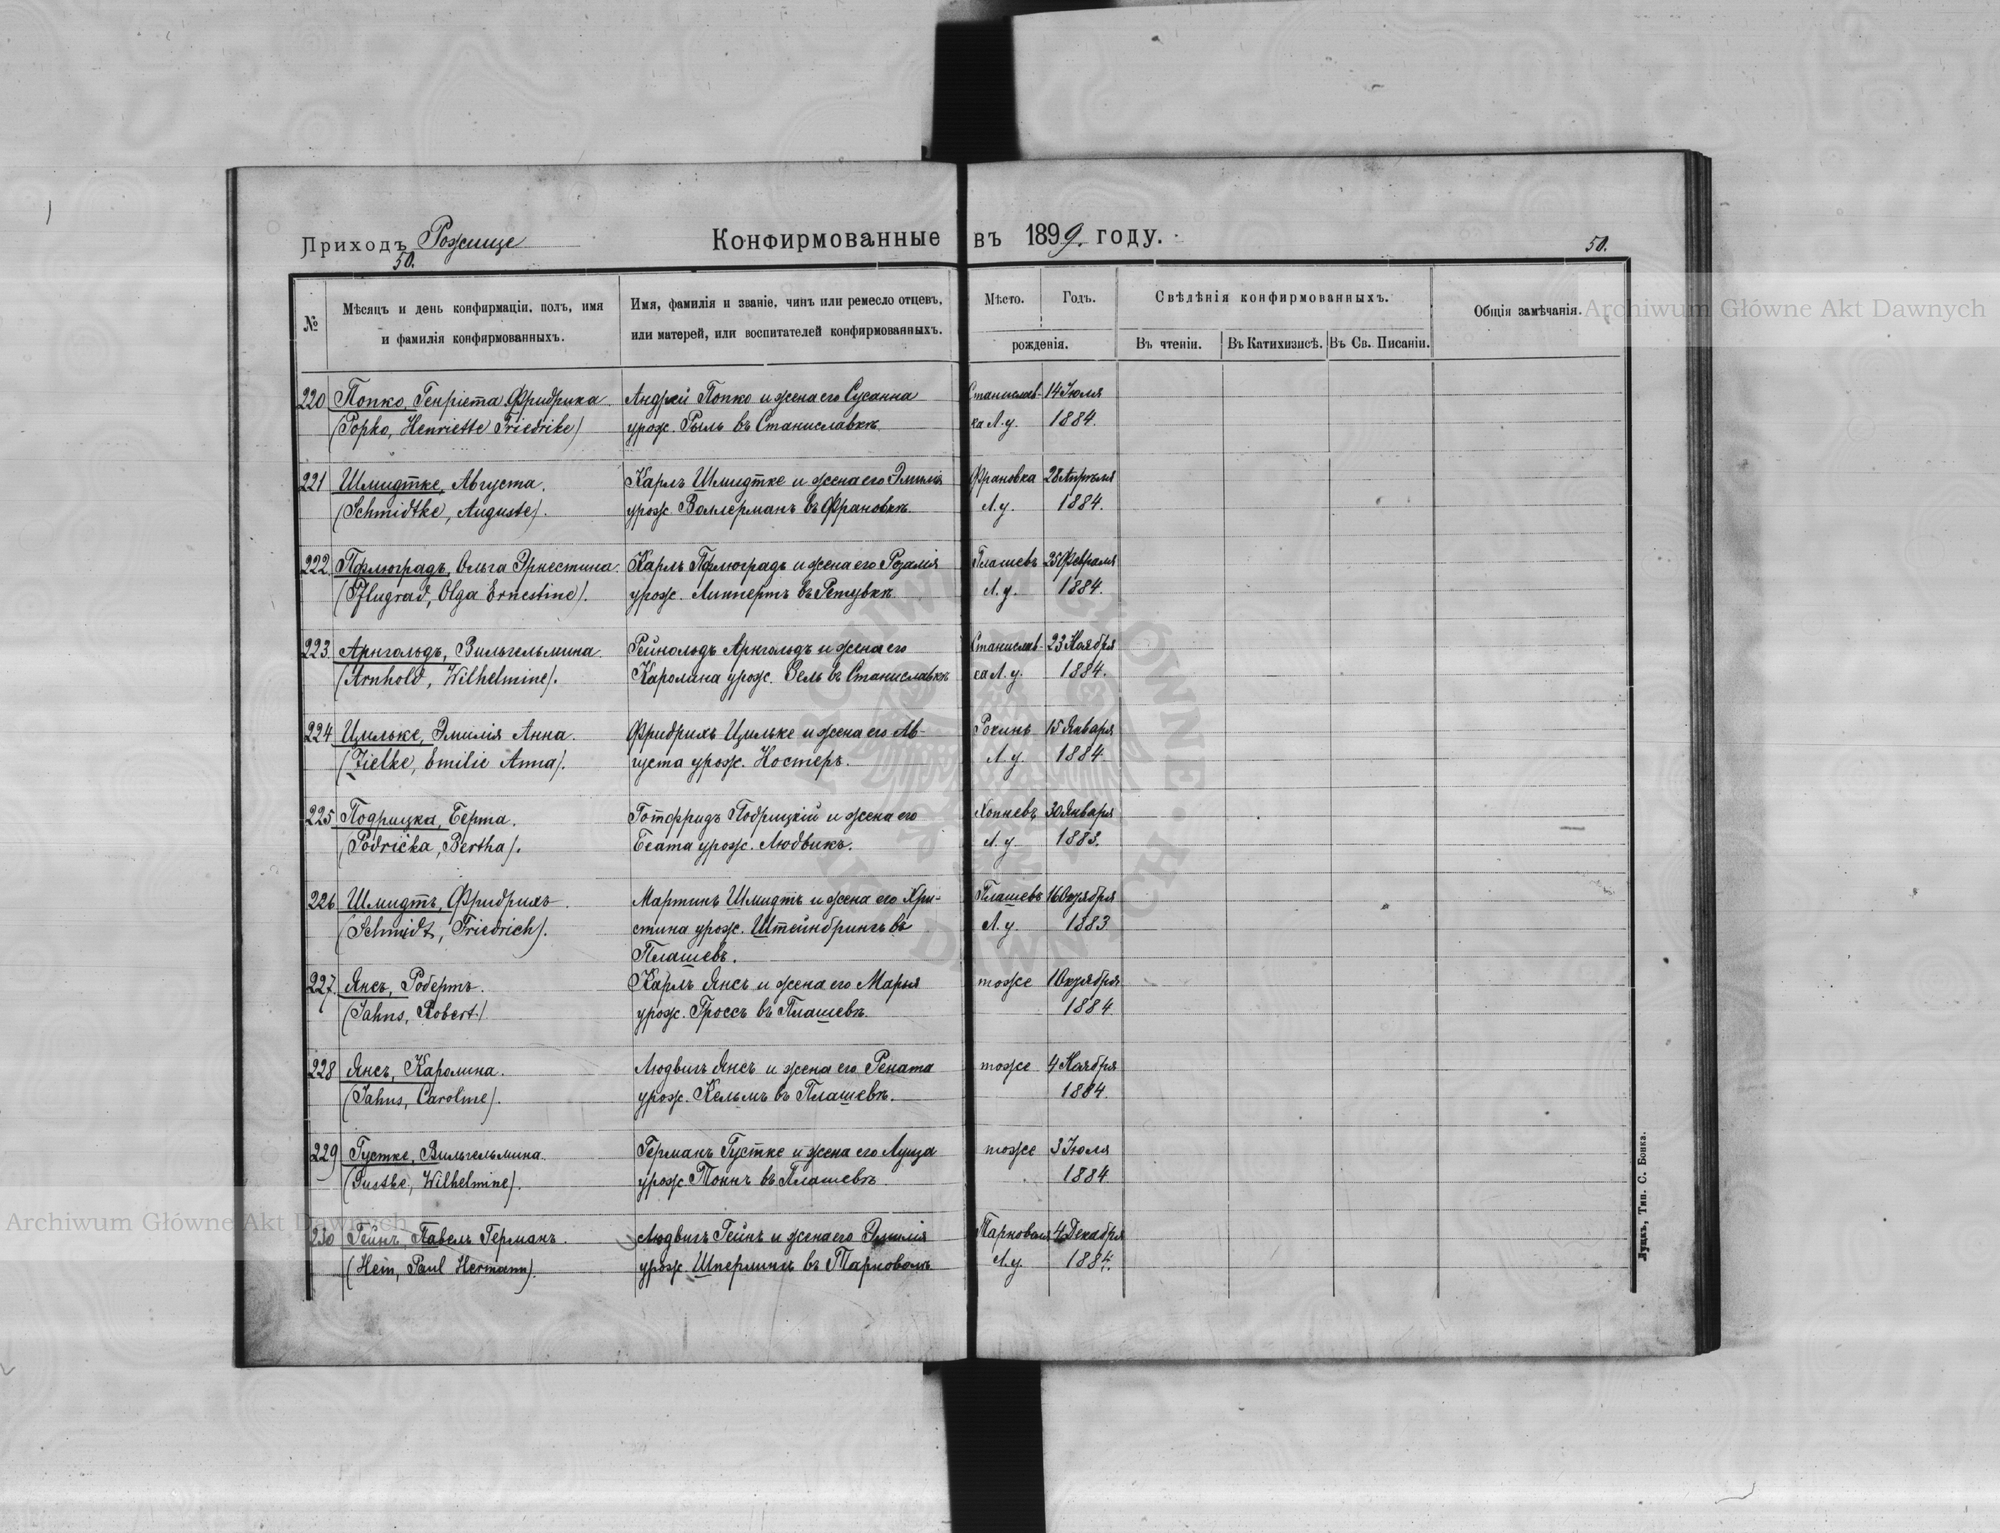 Приходъ Рожище
Конфирмованные въ 1899. году.
50.
50.
№
Мѣсяцъ и день конфирмаціи, полъ, имя
и фамилія конфирмованныхъ.
Имя, фамилія и званіе, чинъ или ремесло отцевъ,
или матерей, или воспитателей конфирмованныхъ.
Мѣсто.
Годъ.
рожденія.
Свѣдѣнія конфирмованныхъ.
Въ чтеніи.
Въ Катихизисѣ.
Въ Св. Писаніи.
Общія замѣчанія.
Archiwum Główne Akt Dawnych
220 Попко, Генріета Фридрика Андрей Попко и жена его Сусанна Станислав- 14 Іюля
(Popko, Henriette Friedrike) урож. Рыль въ Станиславкѣ ка Л. у. 1884.
221 Шмидтке, Августа. Карлъ Шмидтке и жена его Эмилія Франовка 28 Апрѣля
(Schmidtke, Auguste). урож. Воллерманъ въ Франовкѣ. Л. у. 1884.
222. Пфлюградъ, Ольга Эрнестина. Карлъ Пфлюградъ и жена его Розалія Плашевъ 25 Февраля
(Pflugrad, Olga Ernestine). урож. Липпертъ въ Л. у. 1884.
223. Арнгольдъ, Вильгельмина. Рейнольдъ Арнгольдъ и жена его Станислав- 23 Ноября
(Arnhold, Wilhelmine). Каролина урож. Зель въ Станиславкѣ ка Л. у. 1884.
224 Цильке, Эмилія Анна. Фридрихъ Цильке и жена его Ав- 15 Января
(Zielke, Emilie Anna). густа урож. Ностеръ. Л. у. 1884
225 Подрицка, Берта. Готфридъ Подрицкій и жена его Копчевъ 30 Января
(Podricka, Bertha). Беата урож. Людвикъ. Л. у. 1883.
226 Шмидтъ, Фридрихъ. Мартинъ Шмидтъ и жена его Хри- Плашевъ 16 Октября
(Schmidt, Friedrich). стина урож. Штейнбрингъ въ Л. у. 1883
Плашевъ.
227. Янсъ, Робертъ. Карлъ Янсъ и жена его Марья тоже 1 Октября
(Jahns, Robert.) урож. Гроссъ въ Плашевѣ. 1884
228 Янсъ, Каролина. Людвигъ Янсъ и жена его Рената тоже 4 Ноября
(Jahns, Caroline). урож. Кельмъ въ Плашевѣ. 1884.
229 Густке, Вильгельмина. Германъ Густке и жена его Луиза тоже 3 Іюля
(Gustke, Wilhelmine). урож. Тоннъ въ Плашевѣ. 1884.
230 Гейнъ, Павелъ Германъ. Людвигъ Гейнъ и жена его Эмилія Тарноволя 4 Декабря
(Hein, Paul Hermann). урож. Шперлингъ въ Тарноволѣ Л. у. 1884.
Archiwum Główne Akt Dawnych
Луцкъ, Тип. С. Бонка.